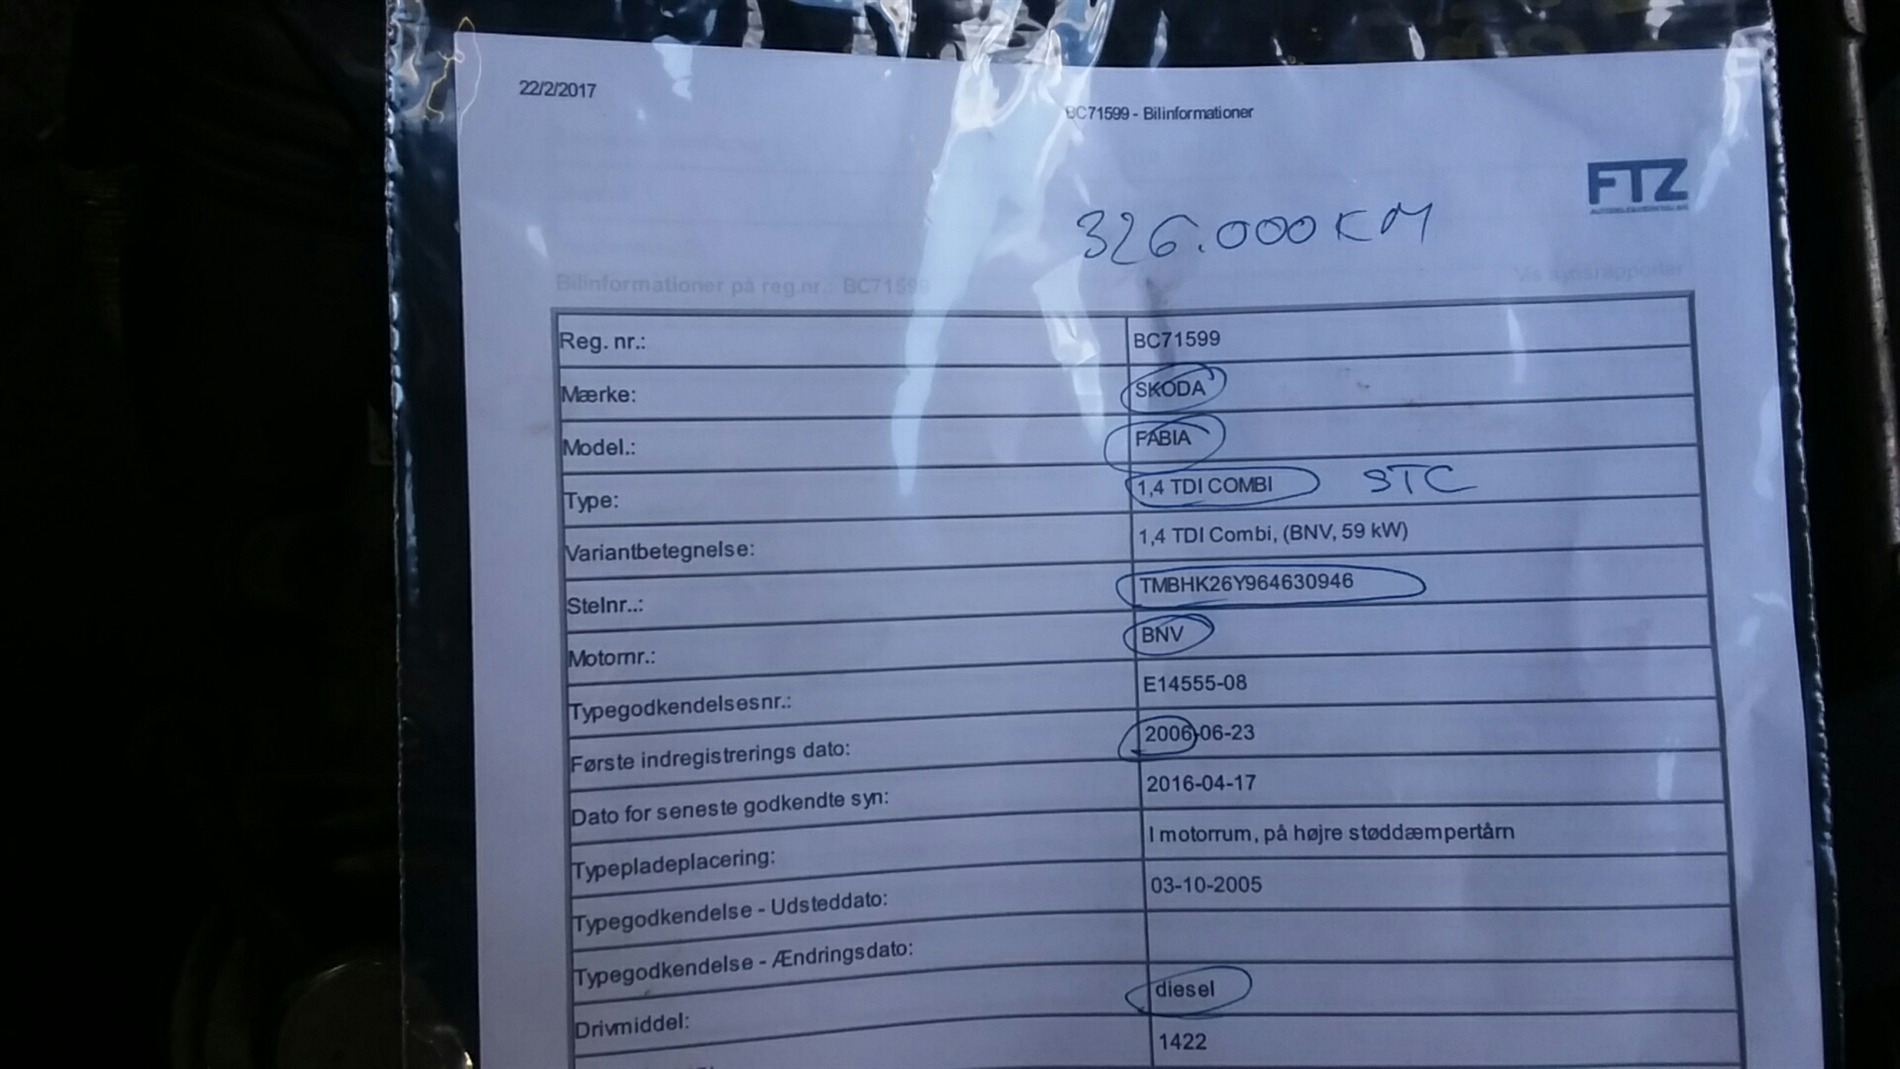 22/2/2017
BC71599 - Bilinformationer
FTZ
326.000 KM
Bilinformationer på reg.nr.: BC71599
Vis synsrapporter
Reg. nr.: BC71599
Mærke: SKODA
Model.: FABIA
Type: 1,4 TDI COMBI STC
Variantbetegnelse: 1,4 TDI Combi, (BNV, 59 kW)
Stelnr..: TMBHK26Y964630946
Motornr.: BNV
Typegodkendelsesnr.: E14555-08
Første indregistrerings dato: 2006-06-23
Dato for seneste godkendte syn: 2016-04-17
Typepladeplacering: I motorrum, på højre støddæmpertårn
Typegodkendelse - Udsteddato: 03-10-2005
Typegodkendelse - Ændringsdato:
Drivmiddel: diesel
1422